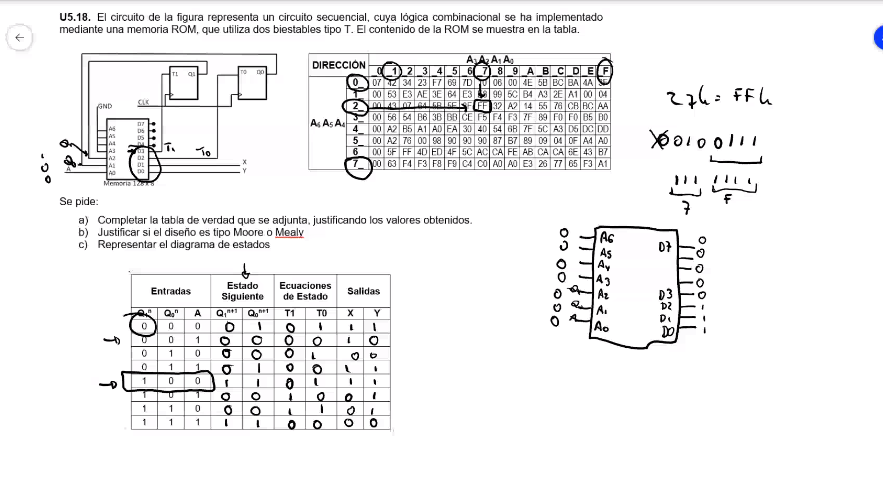 U5.18. El circuito de la figura representa un circuito secuencial, cuya lógica combinacional se ha implementado
mediante una memoria ROM, que utiliza dos biestables tipo T. El contenido de la ROM se muestra en la tabla.
T1 Q1 T0 Q0
GND CLK
A6 D7
A5 D6
A4 D5
A3 D4
A2 D3
A1 D2
A0 D1
D0
T1 T0
A
X
Y
Memoria 128 x 8
DIRECCIÓN A3 A2 A1 A0
_0 _1 _2 _3 _4 _5 _6 _7 _8 _9 _A _B _C _D _E _F
A6 A5 A4
0_ 07 42 34 23 F7 69 7D 10 06 00 4E 5B BC BA 4A
1_ 00 53 E3 AE 3E 64 E3 99 5C B4 A3 2E A1 00 04
2_ 00 43 07 64 5B 5E FF 32 A2 14 55 76 CB BC AA
3_ 00 56 54 B6 3B BB CE F5 F4 F3 7F 89 F0 F0 B5 B0
4_ 00 A2 B5 A1 A0 EA 30 40 54 6B 7F 5C A3 D5 DC DD
5_ 00 A2 76 00 98 90 90 90 87 B7 89 09 04 0F A4 A0
6_ 00 5F FF 4D ED 4F 5C AC CA FE AB CA CA 6E 43 B7
7_ 00 63 F4 F3 F8 F9 C4 C0 A0 A0 E3 26 77 65 F3 A1
27h = FFh
X0100111
111 1111
7 F
Se pide:
a) Completar la tabla de verdad que se adjunta, justificando los valores obtenidos.
b) Justificar si el diseño es tipo Moore o Mealy
c) Representar el diagrama de estados
0 A6 D7 0
0 A5 0
0 A4 0
0 A3 0
0 Q1 A2 D3 0
0 Q0 A1 D2 1
0 A A0 D1 1
D0 1
Entradas Estado Siguiente Ecuaciones de Estado Salidas
Q1n Q0n A Q1n+1 Q0n+1 T1 T0 X Y
0 0 0 0 1 0 1 1 1
0 0 1 0 0 0 0 1 0
0 1 0 0 0 0 1 0 0
0 1 1 0 1 0 0 1 1
1 0 0 1 1 0 1 1 1
1 0 1 0 0 1 0 0 1
1 1 0 0 0 1 1 0 1
1 1 1 1 1 0 0 0 0